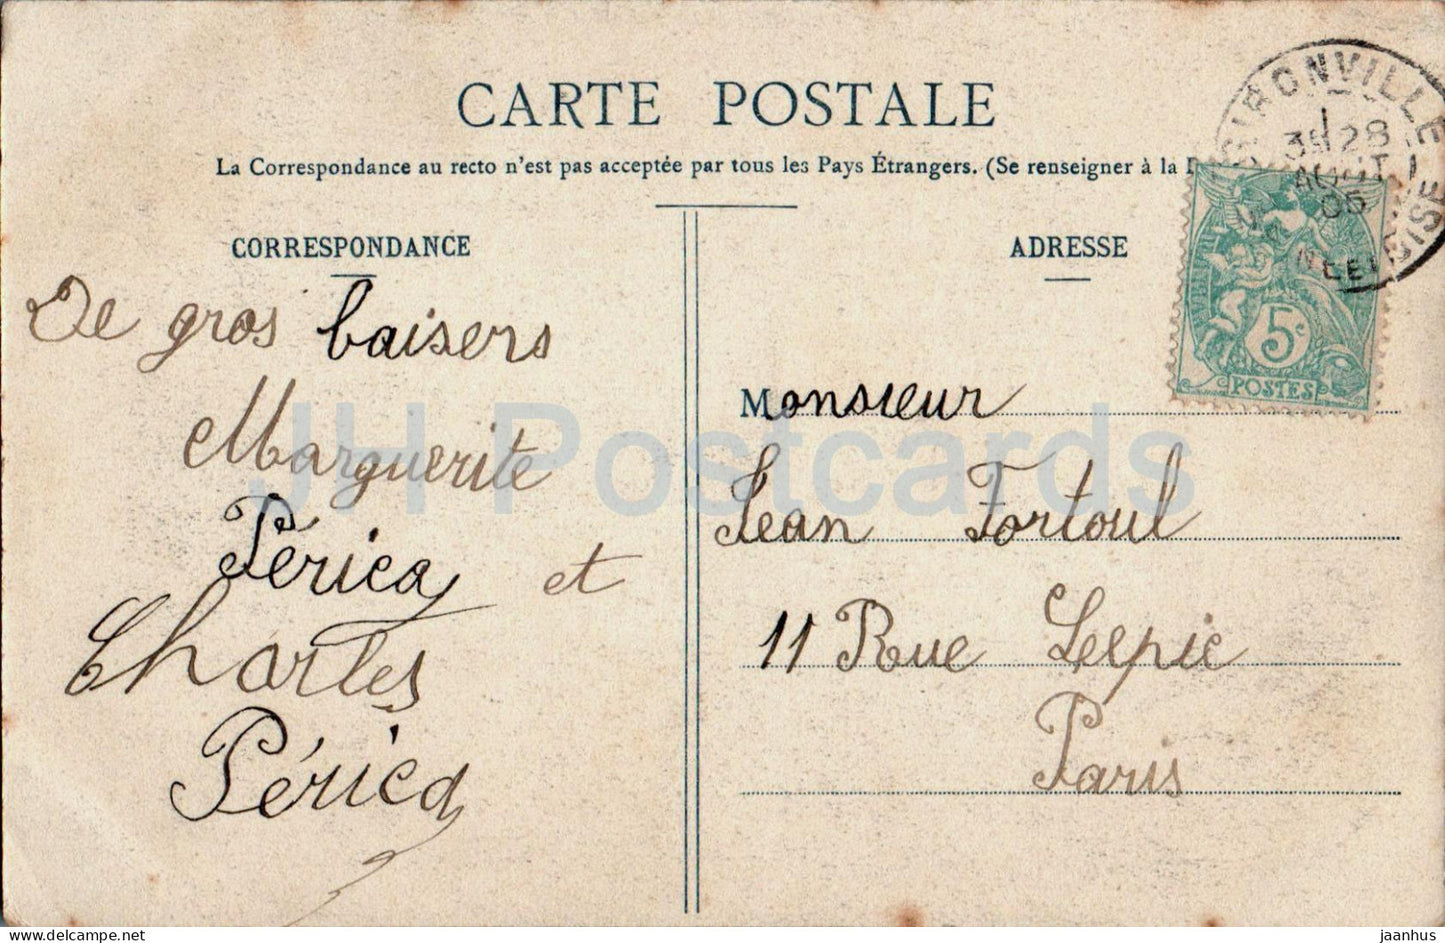 CARTE POSTALE
La Correspondance au recto n'est pas acceptée par tous les Pays Étrangers. (Se renseigner à la
CORRESPONDANCE
De gros baisers
Marguerite
Périca et
Charles
Périca
ADRESSE
Monsieur
Jean Fortoul
11 Rue Leepic
Paris
GIRONVILLE
3E 28
AOUT
05
S.-ET-OISE
5c
POSTES
JH Postcards
www.delcampe.net
jaanhus